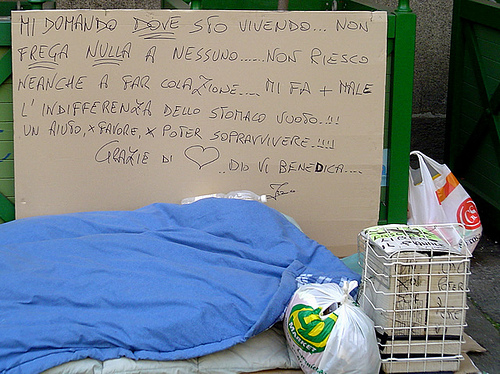 MI DOMANDO DOVE STO VIVENDO... NON
FREGA NULLA A NESSUNO......NON RIESCO
NEANCHE A FAR COLAZIONE.... MI FA + MALE
L'INDIFFERENZA DELLO STOMACO VUOTO..!!
UN AIUTO, X FAVORE, X POTER SOPRAVVIVERE..!!!!
GRAZIE DI ♡ ..DIO VI BENEDICA....
MARKET